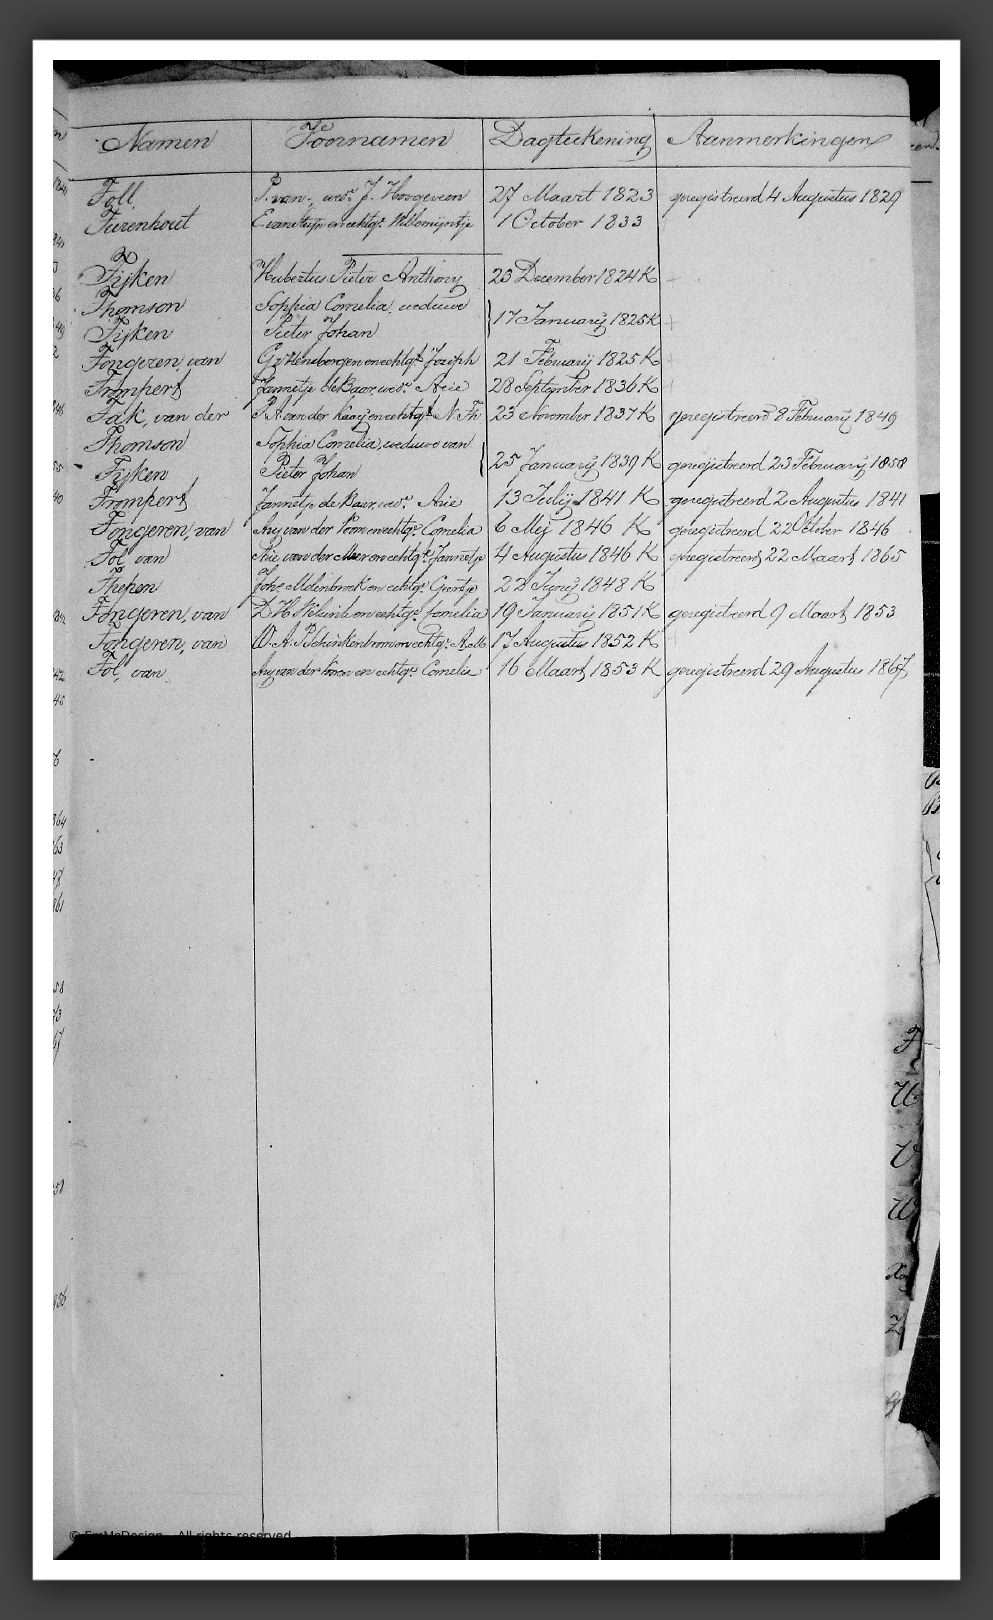 Namen Voornamen Dagteekening Aanmerkingen
Toll, P. van, wed.e J. Hoogeveen 27 Maart 1823 geregistreerd 4 Augustus 1829
Turenhout Evanstrijp en echtge. Willemijntje 1 October 1833
Tijken Hubertus Pieter Anthony 23 December 1824 K
Thomson Sophia Cornelia, weduwe
Tijken Pieter Johan 17 Januarij 1825 K
Tongeren, van en echtge. Joseph 21 Februarij 1825 K
Trompert Jannetje de Baar, wede. Arie 28 September 1836 K
Tak, van der P. A. van der Kaaij en echtge. N. Th. 23 November 1837 K geregistreerd 8 Februarij 1849
Thomson Sophia Cornelia, weduwe van
Tijken Pieter Johan 25 Januarij 1839 K geregistreerd 23 Februarij 1858
Trompert Jannetje de Baar, wede. Arie 13 Julij 1841 K geregistreerd 2 Augustus 1841
Tongeren, van Arij van der en echtge. Cornelia 6 Meij 1846 K geregistreerd 22 October 1846
Tol, van Arie van der Meer en echtge. Jannetje 4 Augustus 1846 K geregistreerd 22 Maart 1865
Thepen Johs. Molenbroek en echtge. Geertje 22 Junij 1848 K
Tongeren, van D. H. en echtge. Cornelia 19 Januarij 1851 K geregistreerd 9 Maart 1853
Tongeren, van W. A. P. en echtge. 17 Augustus 1852 K
Tol, van Arij van der en echtge. Cornelia 16 Maart 1853 K geregistreerd 29 Augustus 1867
© EmMaDesign - All rights reserved